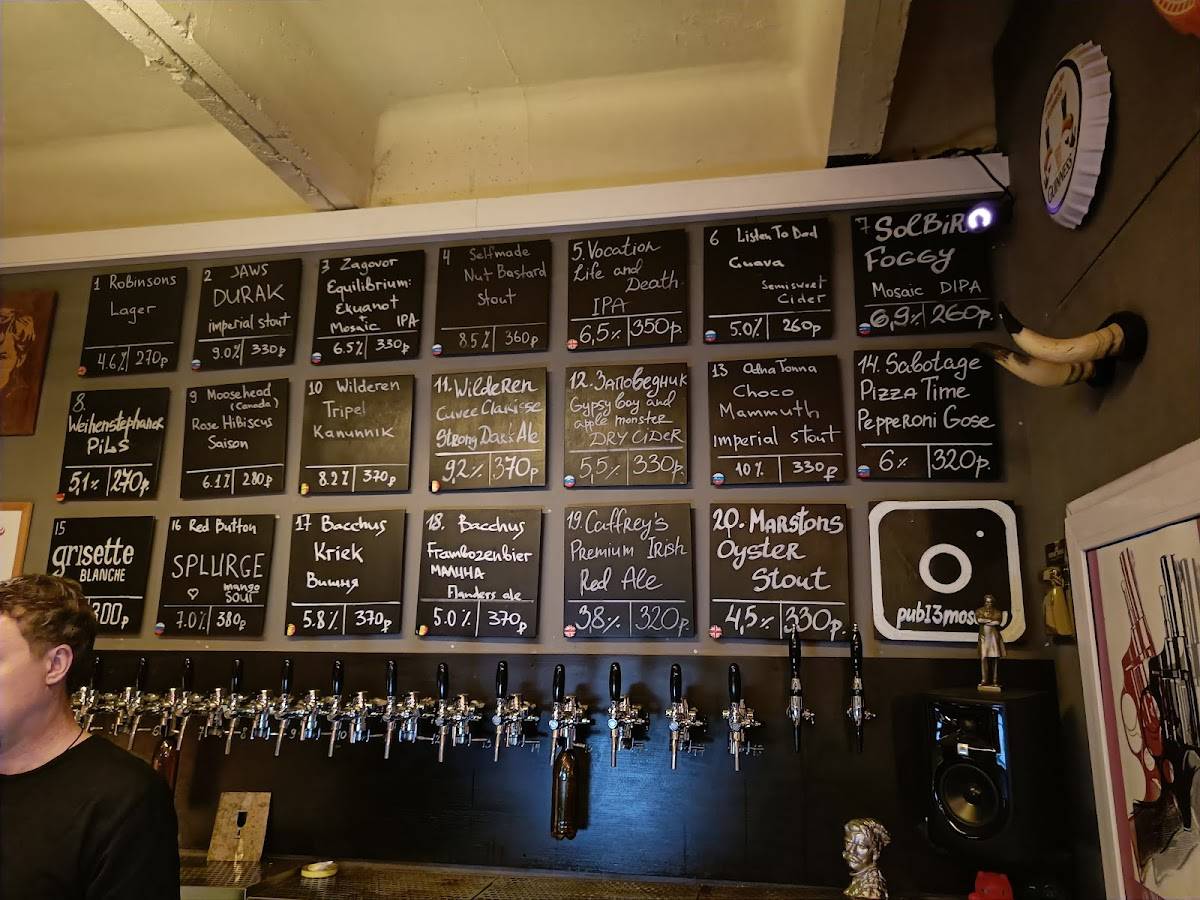 1 Robinsons
Lager
4.6% 270р
2 JAWS
DURAK
imperial stout
9.0% 330₽
3 Zagovor
Equilibrium:
Ekuanot
+
Mosaic IPA
6.5% 330₽
4 Selfmade
Nut Bastard
Stout
8.5% 360₽
5. Vocation
Life and
Death
IPA
6,5% 350р.
6 Listen To Dad
Guava
Semisweet
Cider
5.0% 260₽
7 SolBiR
FOGGY
Mosaic DIPA
6,9% 260р.
8.
Weihenstephaner
PiLs
5,1% 270р
9 Moosehead
(Canada)
Rose Hibiscus
Saison
6.1% 280₽
10 Wilderen
Tripel
Kanunnik
8.2% 370₽
11. WildeREn
Cuvee Clarisse
Strong Dark Ale
9,2% 370р
12. Заповедник
Gypsy boy and
apple monster
DRY CiDER
5,5% 330р.
13 Odna Tonna
Choco
Mammuth
imperial stout
10% 330₽
14. Sabotage
Pizza Time
Pepperoni Gose
6% 320р.
15
grisette
BLANCHE
300р.
16 Red Button
SPLURGE
mango
SOUR
7.0% 380₽
17 Bacchus
Kriek
Вишня
5.8% 370₽
18. Bacchus
Frambozenbier
МАЛИНА
Flanders ale
5.0% 370₽
19. Caffrey's
Premium Irish
Red Ale
3,8% 320р.
20. MARStons
Oyster
Stout
4,5% 330р.
GUINNESS